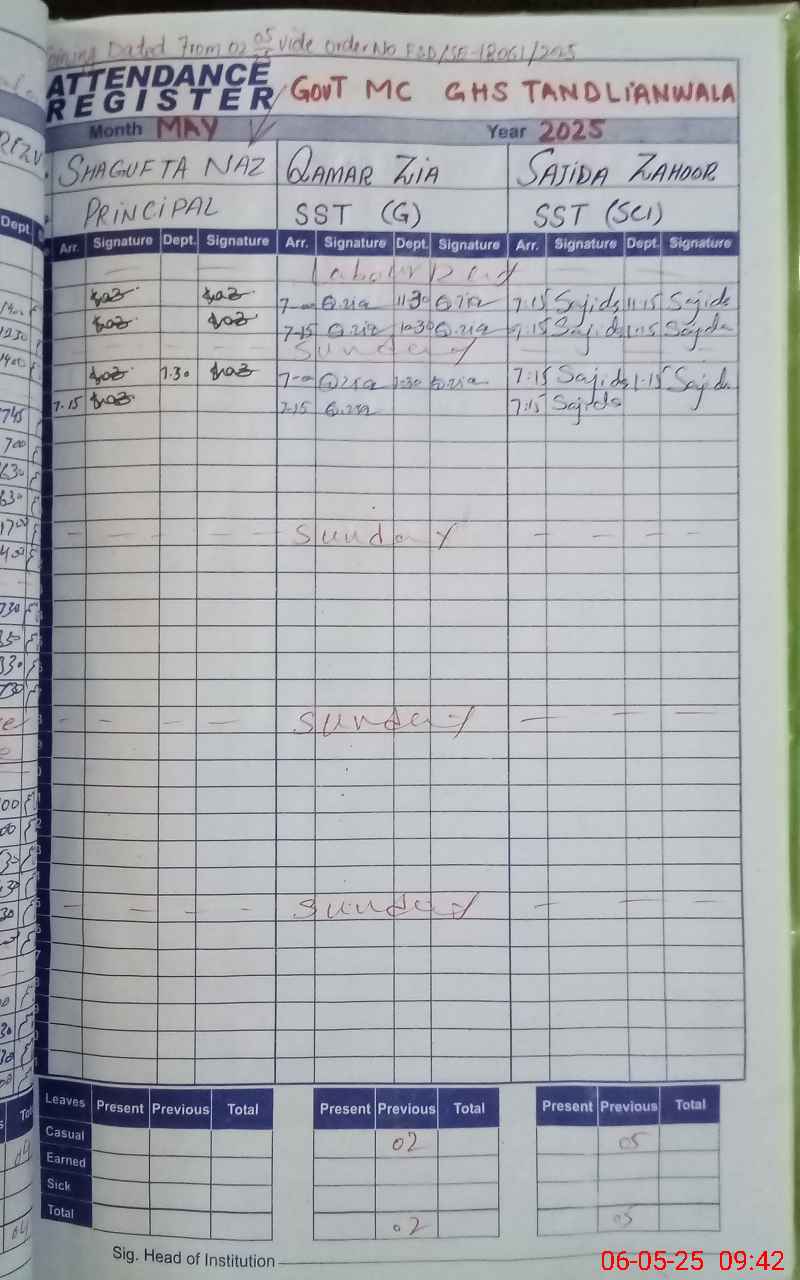 Joining Dated From 02 05 Vide Order No FSD/SE-18061/2025
ATTENDANCE
REGISTER
GOVT MC GHS TANDLIANWALA
Month MAY Year 2025
SHAGUFTA NAZ QAMAR ZIA SAJIDA ZAHOOR
PRINCIPAL SST (G) SST (SCI)
Dept. Arr. Signature Dept. Signature Arr. Signature Dept. Signature Arr. Signature Dept. Signature
Labour Day
Naz Naz 7-00 Q.zia 11-30 Q.zia 7:15 Sajida 11:15 Sajida
Naz Naz 7-15 Q.zia 1-30 Q.zia 7:15 Sajida 1:15 Sajida
Sunday
Naz 1.30 Naz 7-00 Q.zia 1-30 Q.zia 7:15 Sajida 1:15 Sajida
7.15 Naz 7-15 Q.zia 7:15 Sajida
Sunday
Sunday
Sunday
Leaves Present Previous Total Present Previous Total Present Previous Total
Casual 02 05
Earned
Sick
Total 02 05
Sig. Head of Institution
06-05-25 09:42